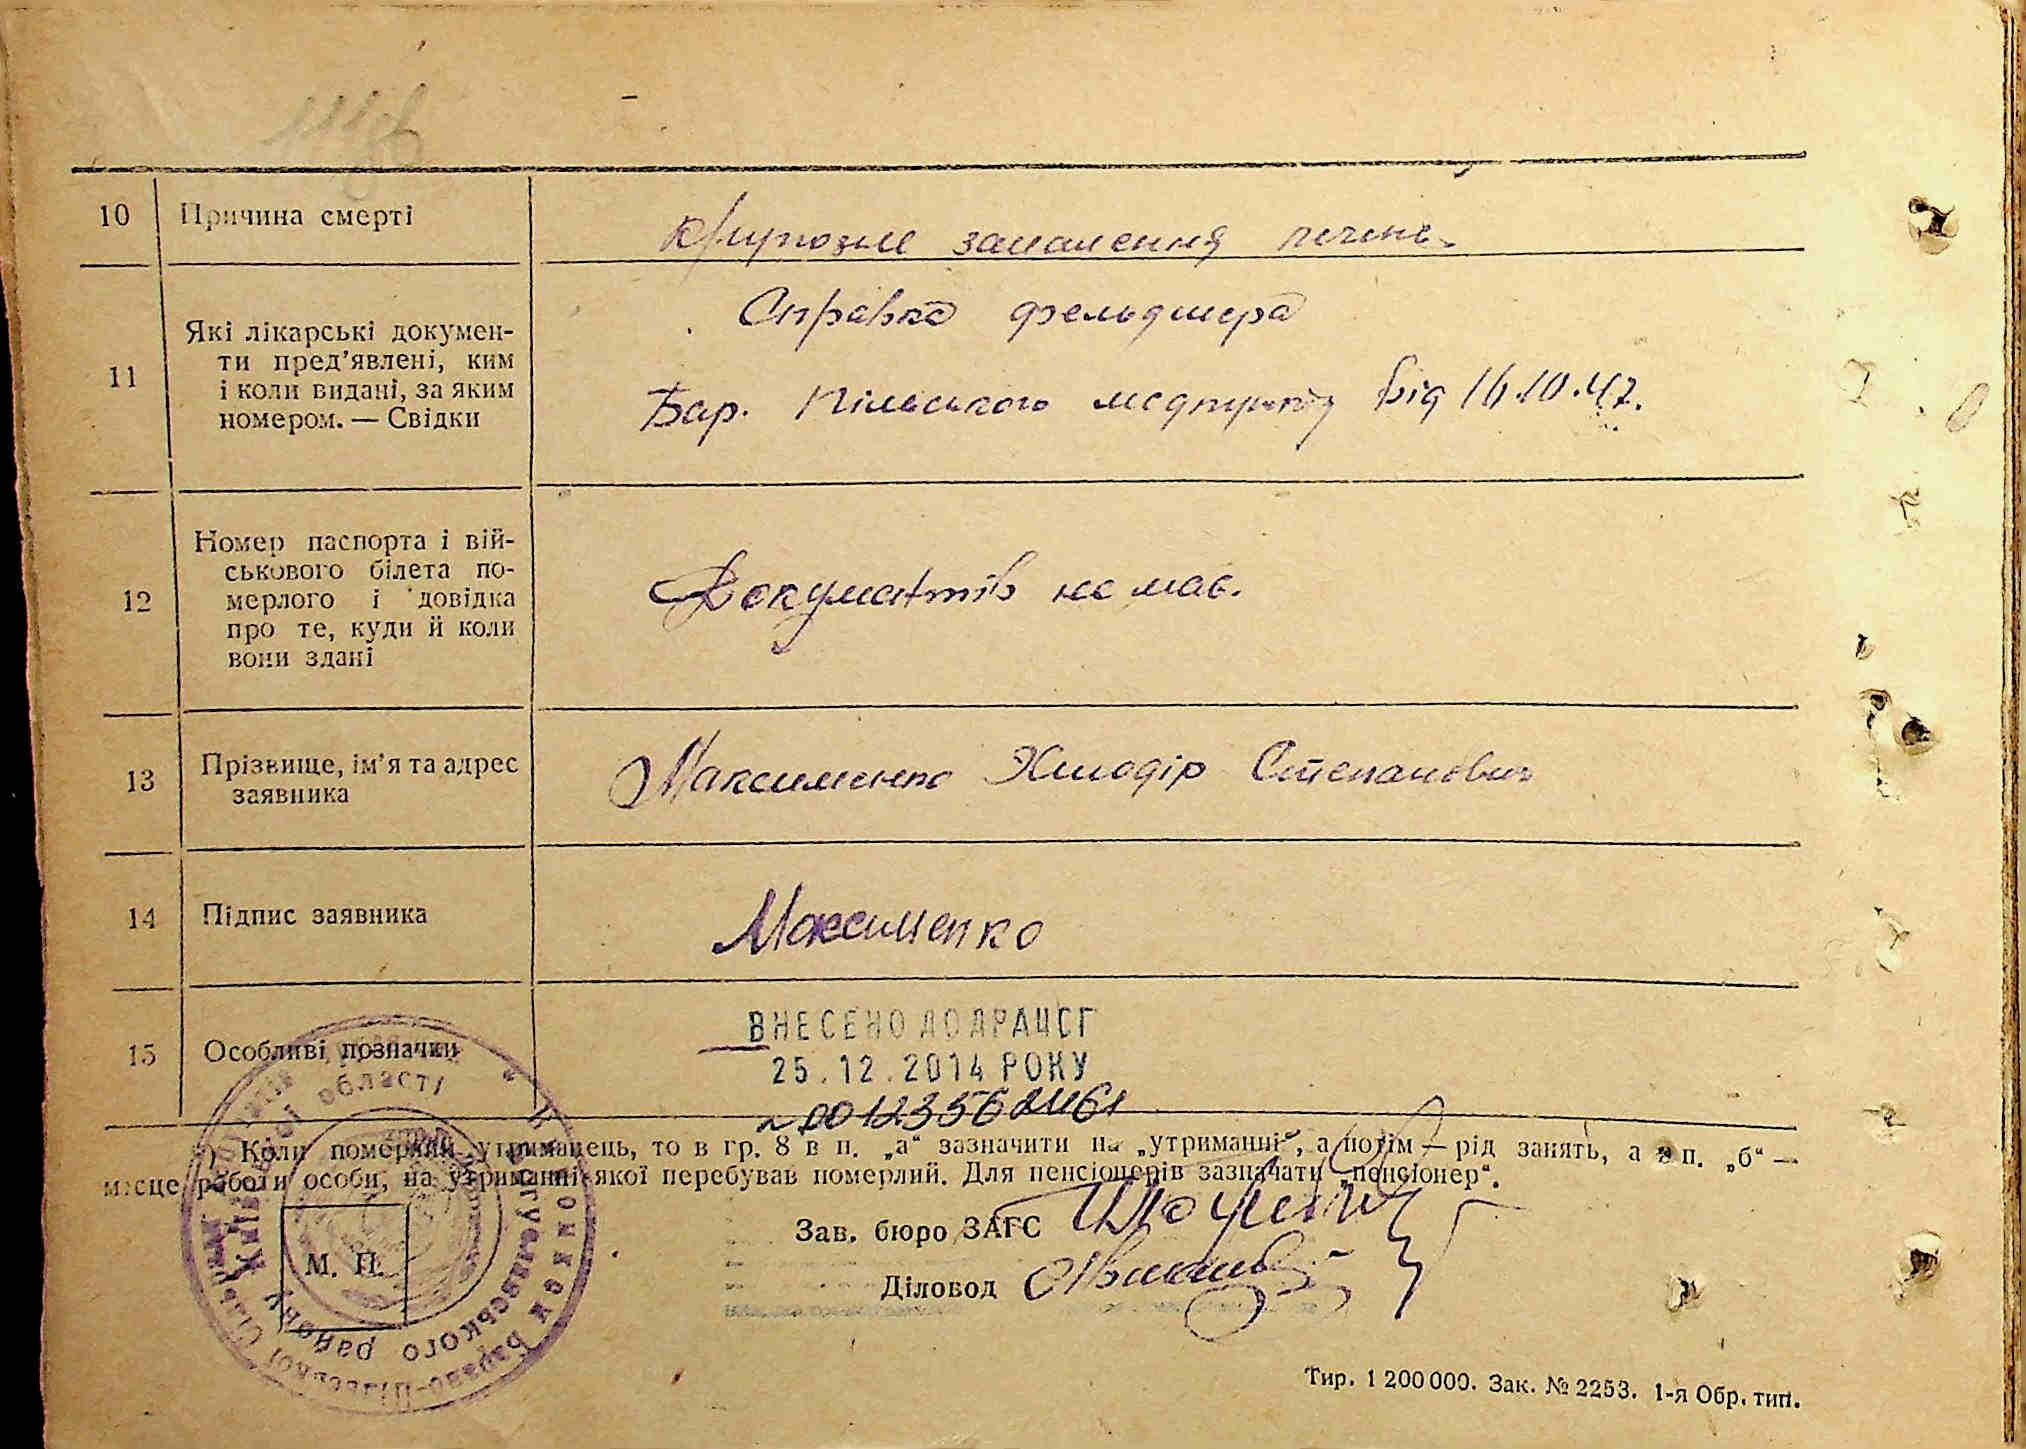 10 Причина смерті
Крупозне запалення печені
11 Які лікарські докумен-
ти пред’явлені, ким
і коли видані, за яким
номером. — Свідки
Справка фельдшера
Бар. Пільського медпункту від 16.10.47.
12 Номер паспорта і вій-
ськового білета по-
мерлого і довідка
про те, куди й коли
вони здані
Документів не має.
13 Прізвище, ім’я та адрес
заявника
Максименко Степанович
14 Підпис заявника
Максименко
15 Особливі позначки
ВНЕСЕНО ДО ДРАЦСГ
25.12.2014 РОКУ
) Коли померлий утриманець, то в гр. 8 в п. „а“ зазначити на „утриманні“, а потім — рід занять, а в п. „б“ —
місце роботи особи, на утриманні якої перебував померлий. Для пенсіонерів зазначати „пенсіонер“.
Зав. бюро ЗАГС
Діловод
М. П.
Богуславського району
області
Тир. 1 200 000. Зак. № 2253. 1-я Обр. тип.